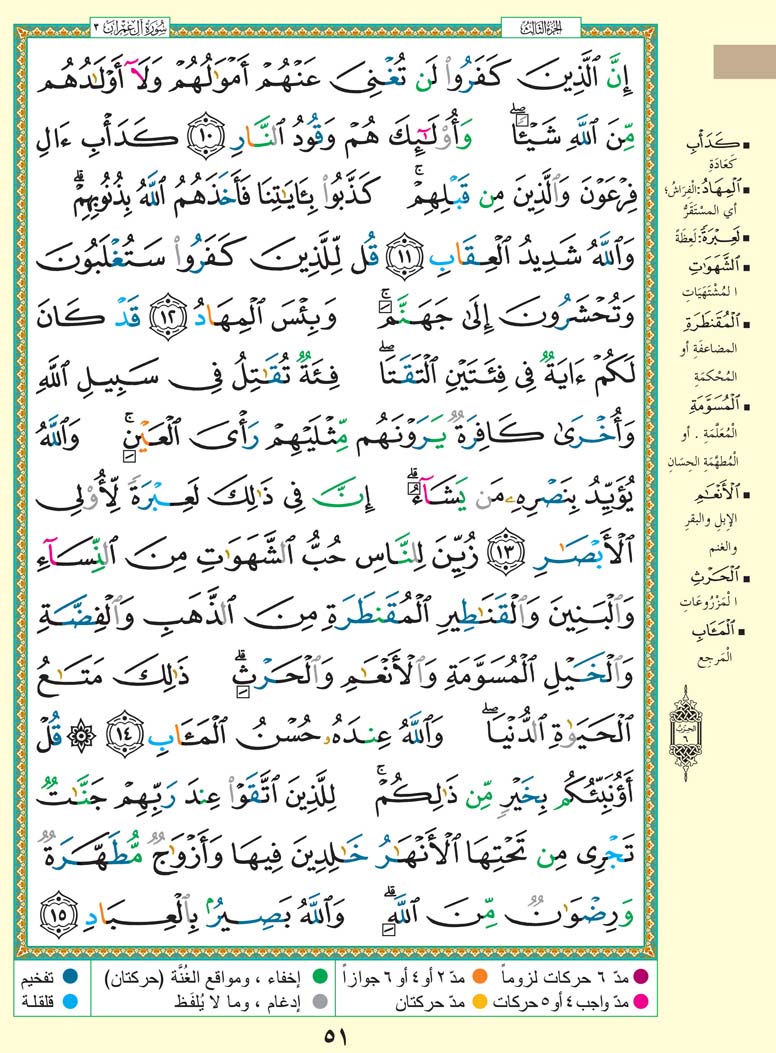 الجزء الثالث
سورة آل عمران ٣
إِنَّ الَّذِينَ كَفَرُوا۟ لَن تُغْنِىَ عَنْهُمْ أَمْوَٰلُهُمْ وَلَآ أَوْلَـٰدُهُم
مِّنَ اللَّهِ شَيْـًٔاۖ وَأُو۟لَـٰٓئِكَ هُمْ وَقُودُ النَّارِ ١٠ كَدَأْبِ ءَالِ
فِرْعَوْنَ وَالَّذِينَ مِن قَبْلِهِمْۚ كَذَّبُوا۟ بِـَٔايَـٰتِنَا فَأَخَذَهُمُ اللَّهُ بِذُنُوبِهِمْۗ
وَاللَّهُ شَدِيدُ الْعِقَابِ ١١ قُل لِّلَّذِينَ كَفَرُوا۟ سَتُغْلَبُونَ
وَتُحْشَرُونَ إِلَىٰ جَهَنَّمَۚ وَبِئْسَ الْمِهَادُ ١٢ قَدْ كَانَ
لَكُمْ ءَايَةٌ فِى فِئَتَيْنِ الْتَقَتَاۖ فِئَةٌ تُقَـٰتِلُ فِى سَبِيلِ اللَّهِ
وَأُخْرَىٰ كَافِرَةٌ يَرَوْنَهُم مِّثْلَيْهِمْ رَأْىَ الْعَيْنِۚ وَاللَّهُ
يُؤَيِّدُ بِنَصْرِهِۦ مَن يَشَآءُۗ إِنَّ فِى ذَٰلِكَ لَعِبْرَةً لِّأُو۟لِى
الْأَبْصَـٰرِ ١٣ زُيِّنَ لِلنَّاسِ حُبُّ الشَّهَوَٰتِ مِنَ النِّسَآءِ
وَالْبَنِينَ وَالْقَنَـٰطِيرِ الْمُقَنطَرَةِ مِنَ الذَّهَبِ وَالْفِضَّةِ
وَالْخَيْلِ الْمُسَوَّمَةِ وَالْأَنْعَـٰمِ وَالْحَرْثِۗ ذَٰلِكَ مَتَـٰعُ
الْحَيَوٰةِ الدُّنْيَاۖ وَاللَّهُ عِندَهُۥ حُسْنُ الْمَـَٔابِ ١٤ ۞ قُلْ
أَؤُنَبِّئُكُم بِخَيْرٍ مِّن ذَٰلِكُمْۚ لِلَّذِينَ اتَّقَوْا۟ عِندَ رَبِّهِمْ جَنَّـٰتٌ
تَجْرِى مِن تَحْتِهَا الْأَنْهَـٰرُ خَـٰلِدِينَ فِيهَا وَأَزْوَٰجٌ مُّطَهَّرَةٌ
وَرِضْوَٰنٌ مِّنَ اللَّهِۗ وَاللَّهُ بَصِيرٌۢ بِالْعِبَادِ ١٥
كَدَأْبِ
كَعَادَةِ
الْمِهَادُ: الفِرَاشُ؛
أي المسْتَقَرُّ
لَعِبْرَةً: لَعِظَةً
الشَّهَوَٰتِ
المُشْتَهَيَاتِ
الْمُقَنطَرَةِ
المضاعفَةِ أو
المُحْكمَةِ
الْمُسَوَّمَةِ
الْمُعَلَّمَةِ . أو
الْمُطهَّمَةِ الحِسَانِ
الْأَنْعَـٰمِ
الإبلِ والبقرِ
والغنم
الْحَرْثِ
المَزْرُوعَاتِ
الْمَـَٔابِ
الْمَرجِع
الحزب
٦
مدّ ٦ حركات لزوماً
مدّ ٢ أو ٤ أو ٦ جوازاً
إخفاء ، ومواقع الغُنَّة (حركتان)
تفخيم
مدّ واجب ٤ أو ٥ حركات
مدّ حركتان
إدغام ، وما لا يُلفَظ
قلقلة
٥١